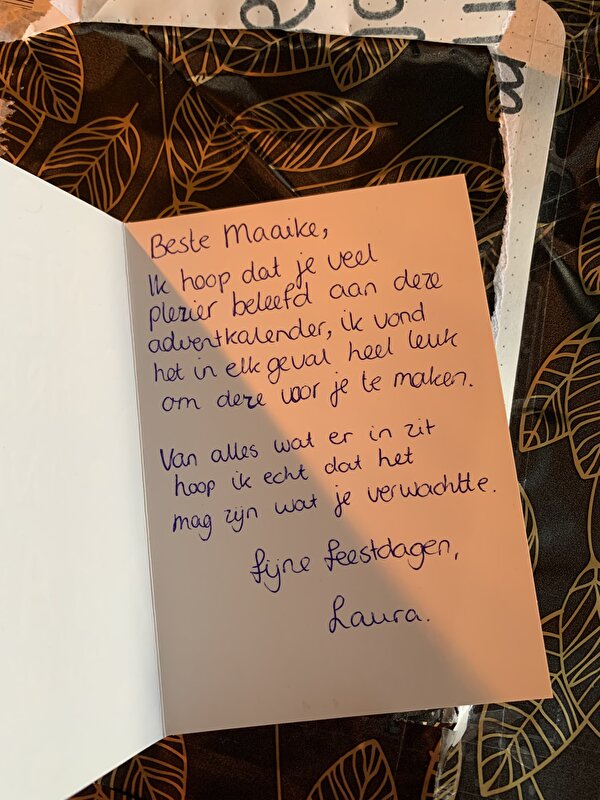 Beste Maaike,
Ik hoop dat je veel
plezier beleefd aan deze
adventkalender, ik vond
het in elk geval heel leuk
om deze voor je te maken.
Van alles wat er in zit
hoop ik echt dat het
mag zijn wat je verwachtte.
Fijne feestdagen,
Laura.